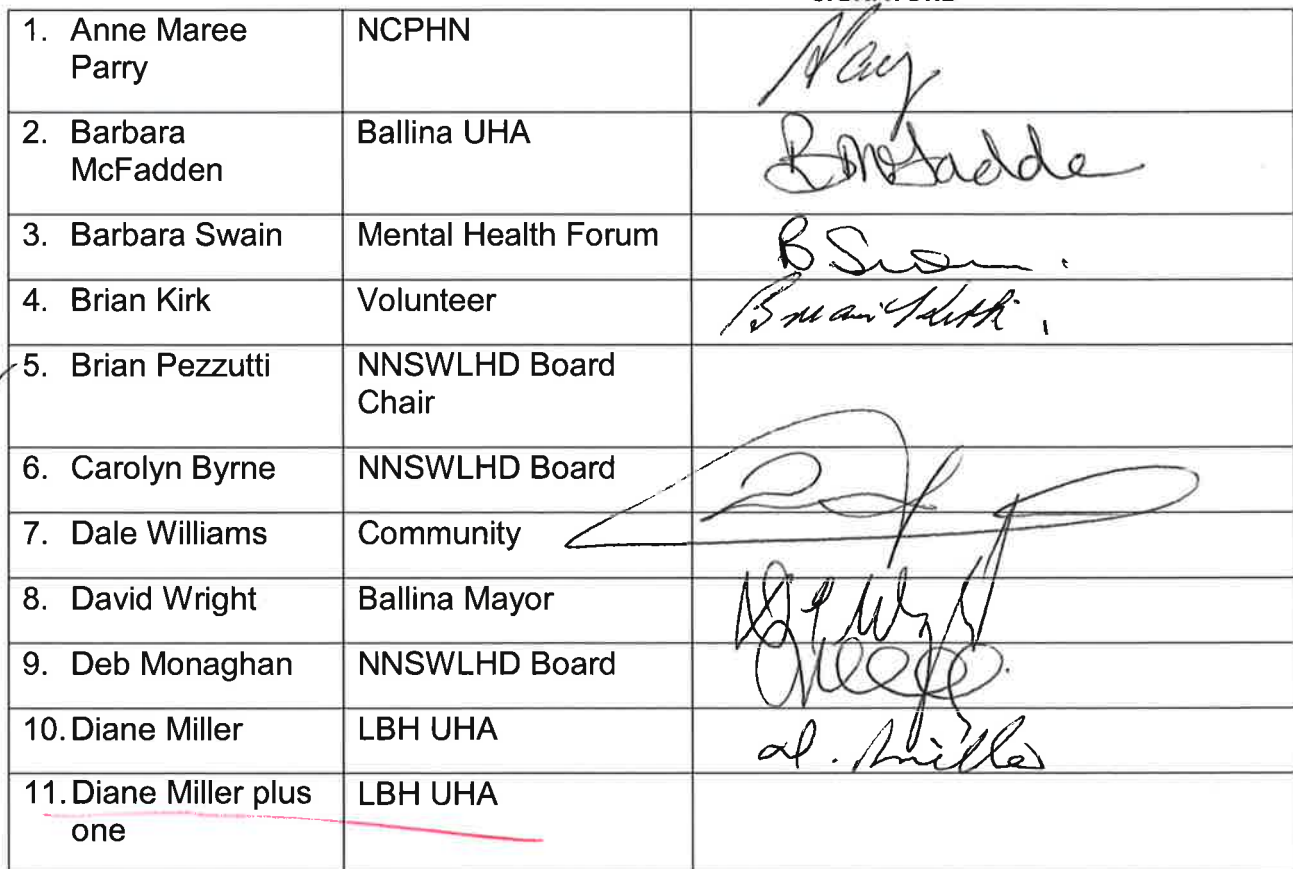 1. Anne Maree Parry NCPHN
2. Barbara McFadden Ballina UHA BMcFadde
3. Barbara Swain Mental Health Forum B Swain.
4. Brian Kirk Volunteer Brian Kirk.
5. Brian Pezzutti NNSWLHD Board Chair
6. Carolyn Byrne NNSWLHD Board
7. Dale Williams Community
8. David Wright Ballina Mayor
9. Deb Monaghan NNSWLHD Board
10. Diane Miller LBH UHA D. Miller
11. Diane Miller plus one LBH UHA